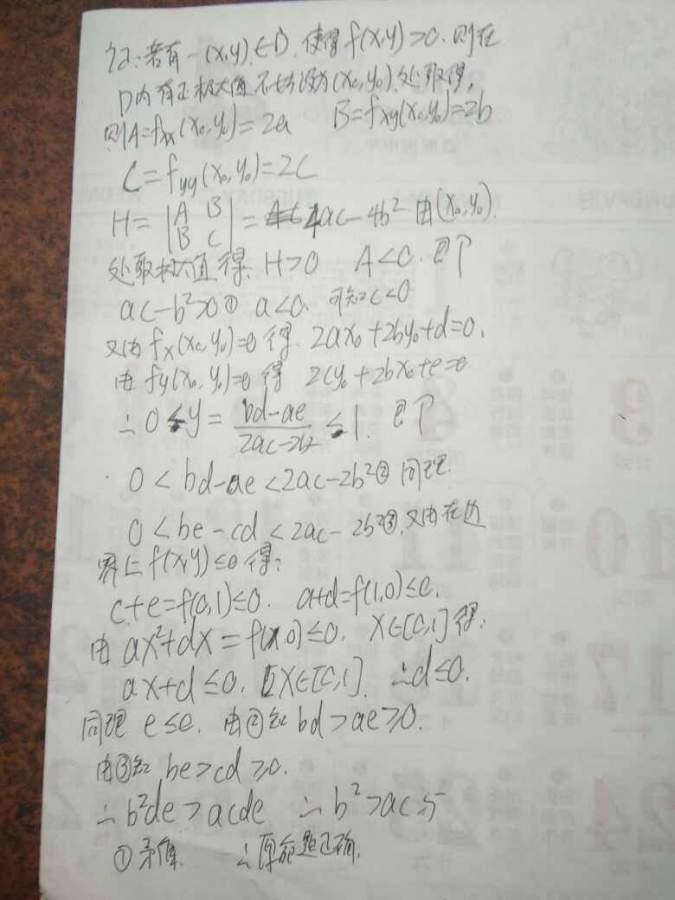 记:若有一(x,y)∈D,使得f(x,y)>0.则在
D内有正极大值,不妨设为(x₀,y₀)处取得,
则A=fxx(x₀,y₀)=2a B=fxy(x₀,y₀)=2b
C=fyy(x₀,y₀)=2c
H=|A B; B C|=4ac-4b² 由(x₀,y₀)
处取极大值得,H>0 A<0.即
ac-b²>0① a<0. 可知c<0
又由fx(x₀,y₀)=0得 2ax₀+2by₀+d=0,
由fy(x₀,y₀)=0得 2cy₀+2bx₀+e=0
∴0<y=(bd-ae)/(2ac-2b²)<1.即
0<bd-ae<2ac-2b²② 同理
0<be-cd<2ac-2b²③,又由在边
界上f(x,y)≤0得:
c+e=f(0,1)≤0. a+d=f(1,0)≤0.
由ax²+dx=f(x,0)≤0. x∈[0,1]得:
ax+d≤0. x∈[0,1]. ∴d≤0.
同理e≤0. 由②知bd>ae≥0.
由③知 be>cd≥0.
∴b²de>acde ∴b²>ac与
①矛盾. ∴原命题正确.